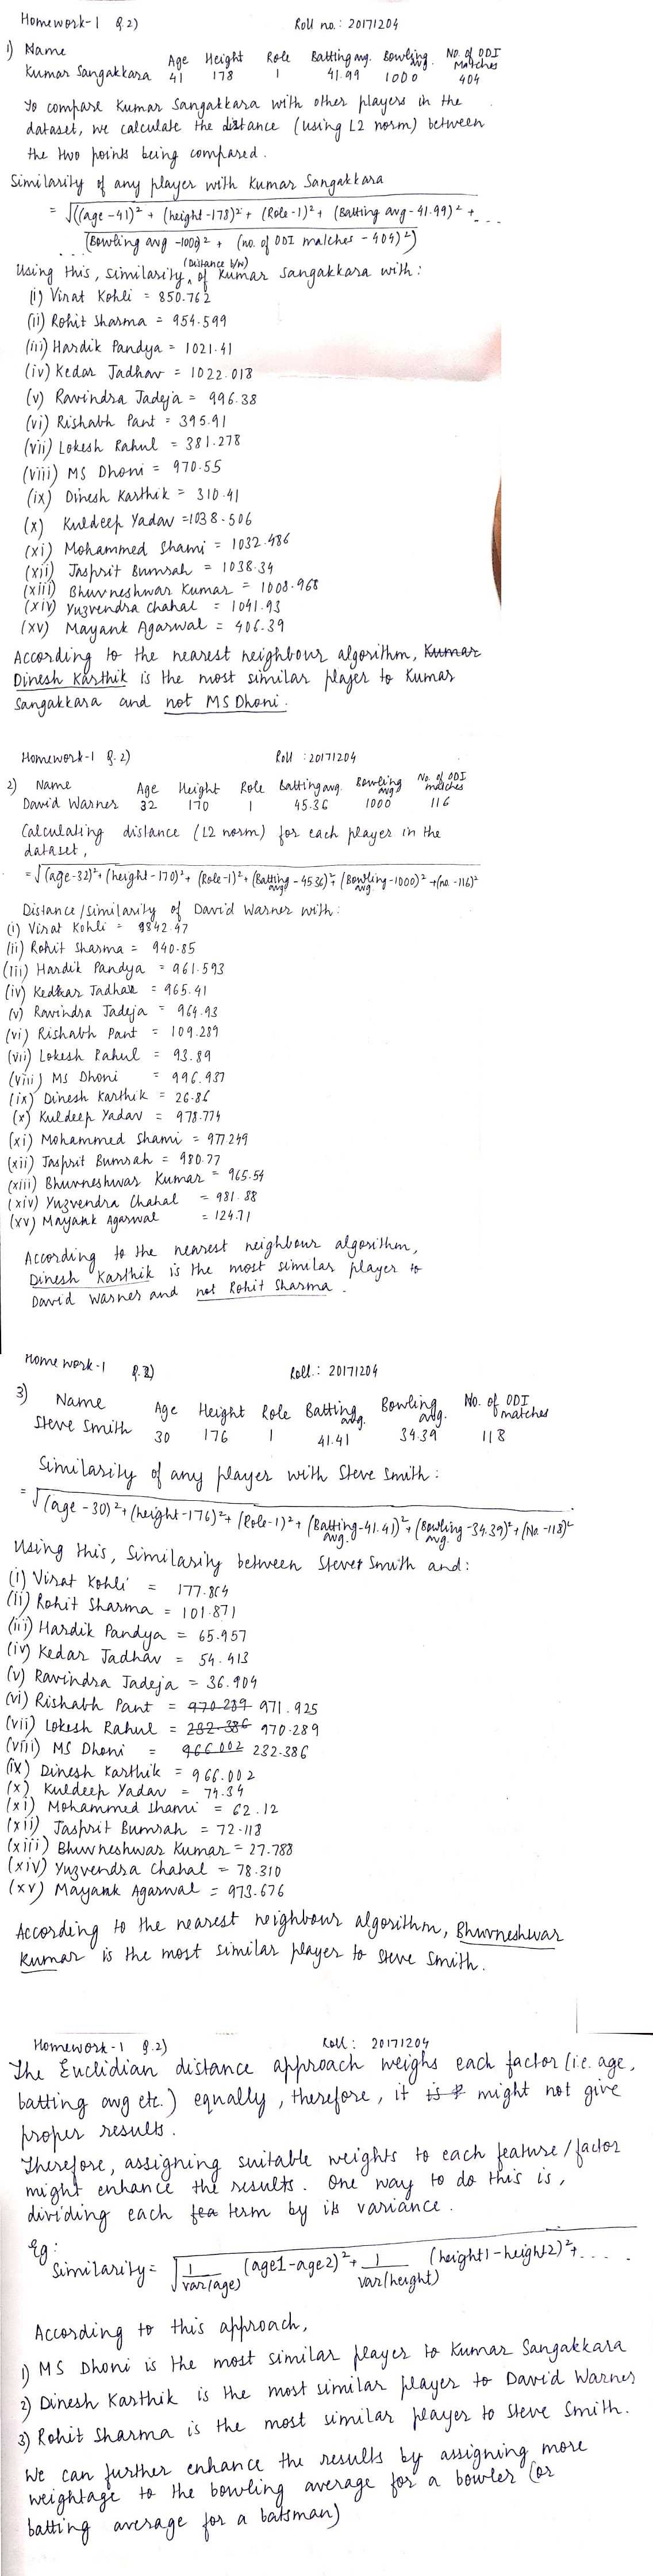 Homework-1 Q.2) Roll no.: 20171204
1) Name Age Height Role Batting avg. Bowling avg. No. of ODI Matches
Kumar Sangakkara 41 178 1 41.99 1000 404
To compare Kumar Sangakkara with other players in the
dataset, we calculate the distance (using L2 norm) between
the two points being compared.
Similarity of any player with Kumar Sangakkara
= √((age-41)² + (height-178)² + (Role-1)² + (Batting avg-41.99)² + ...
(Bowling avg -1000)² + (no. of ODI matches - 404)²)
Using this, similarity (Distance b/w) of Kumar Sangakkara with:
(i) Virat Kohli = 850.762
(ii) Rohit Sharma = 954.599
(iii) Hardik Pandya = 1021.41
(iv) Kedar Jadhav = 1022.018
(v) Ravindra Jadeja = 996.38
(vi) Rishabh Pant = 395.91
(vii) Lokesh Rahul = 381.278
(viii) MS Dhoni = 970.55
(ix) Dinesh Karthik = 310.41
(x) Kuldeep Yadav = 1038.506
(xi) Mohammed Shami = 1032.486
(xii) Jasprit Bumrah = 1038.34
(xiii) Bhuvneshwar Kumar = 1008.968
(xiv) Yuzvendra Chahal = 1041.93
(xv) Mayank Agarwal = 406.39
According to the nearest neighbour algorithm, Kumar
Dinesh Karthik is the most similar player to Kumar
Sangakkara and not MS Dhoni.
Homework-1 Q.2) Roll : 20171204
2) Name Age Height Role Batting avg. Bowling avg No. of ODI matches
David Warner 32 170 1 45.36 1000 116
Calculating distance (L2 norm) for each player in the
dataset,
= √(age-32)² + (height-170)² + (Role-1)² + (Batting avg - 45.36)² + (Bowling avg. -1000)² + (no. -116)²
Distance/similarity of David Warner with:
(i) Virat Kohli = 9842.47
(ii) Rohit Sharma = 940.85
(iii) Hardik Pandya = 961.593
(iv) Kedhar Jadhav = 965.41
(v) Ravindra Jadeja = 964.93
(vi) Rishabh Pant = 109.289
(vii) Lokesh Rahul = 93.89
(viii) MS Dhoni = 996.937
(ix) Dinesh Karthik = 26.86
(x) Kuldeep Yadav = 978.774
(xi) Mohammed Shami = 977.249
(xii) Jasprit Bumrah = 980.77
(xiii) Bhuvneshwar Kumar = 965.54
(xiv) Yuzvendra Chahal = 981.88
(xv) Mayank Agarwal = 124.71
According to the nearest neighbour algorithm,
Dinesh Karthik is the most similar player to
David Warner and not Rohit Sharma.
Home work-1 Q.2) Roll.: 20171204
3) Name Age Height Role Batting avg. Bowling avg. No. of ODI matches
Steve Smith 30 176 1 41.41 34.39 118
Similarity of any player with Steve Smith:
= √(age-30)² + (height-176)² + (Role-1)² + (Batting avg. -41.41)² + (Bowling avg. -34.39)² + (No. -118)²
Using this, Similarity between Stever Smith and:
(i) Virat Kohli = 177.864
(ii) Rohit Sharma = 101.871
(iii) Hardik Pandya = 65.957
(iv) Kedar Jadhav = 54.413
(v) Ravindra Jadeja = 36.904
(vi) Rishabh Pant = 970.289 971.925
(vii) Lokesh Rahul = 232.386 970.289
(viii) MS Dhoni = 966.002 232.386
(ix) Dinesh Karthik = 966.002
(x) Kuldeep Yadav = 74.34
(xi) Mohammed Shami = 62.12
(xii) Jasprit Bumrah = 72.118
(xiii) Bhuvneshwar Kumar = 27.788
(xiv) Yuzvendra Chahal = 78.310
(xv) Mayank Agarwal = 973.676
According to the nearest neighbour algorithm, Bhuvneshwar
Kumar is the most similar player to Steve Smith.
Homework-1 Q.2) Roll: 20171204
The Euclidian distance approach weighs each factor (i.e. age,
batting avg etc.) equally, therefore, it is might not give
proper results.
Therefore, assigning suitable weights to each feature/factor
might enhance the results. One way to do this is,
dividing each fea term by its variance.
Eg:
Similarity = √1/var(age) (age1-age2)² + 1/var(height) (height1-height2)² + ....
According to this approach,
1) MS Dhoni is the most similar player to Kumar Sangakkara
2) Dinesh Karthik is the most similar player to David Warner
3) Rohit Sharma is the most similar player to Steve Smith.
We can further enhance the results by assigning more
weightage to the bowling average for a bowler (or
batting average for a batsman)